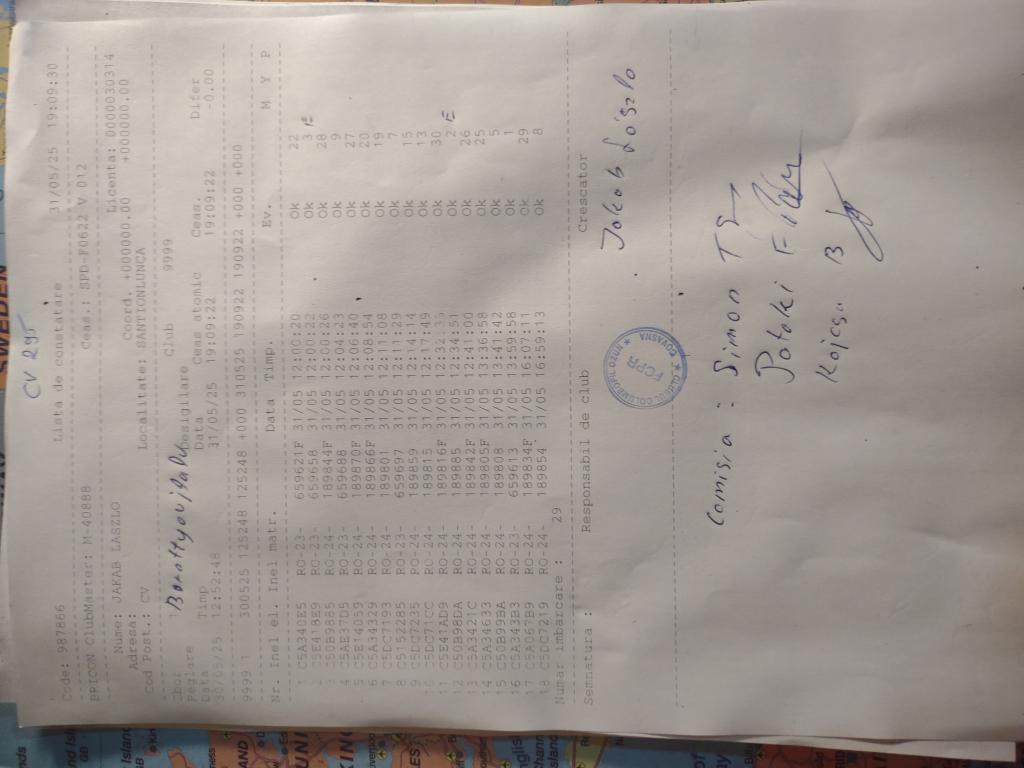 CV 295
Code: 987866 Lista de constatare 31/05/25 19:09:30
BRICON ClubMaster: M-40888 Ceas.: SPD-F0622 V 012
Nume: JAKAB LASZLO Licenta: 0000030314
Adresa: Coord. +000000.00 +000000.00
Cod Post.: CV Localitate: SANTIONLUNCA
Club 9999
Reglare Desigilare
Data Timp Data Ceas atomic Ceas. Difer
30/05/25 12:52:48 31/05/25 19:09:22 19:09:22 -0.00
9999 1 300525 125248 125248 +000 310525 190922 190922 +000 +000
Nr. Inel el. Inel matr. Data Timp. Ev. M Y P
1 C5A340E5 RO-23- 659621F 31/05 12:00:20 Ok 22
2 C5E418E9 RO-23- 659658 31/05 12:00:22 Ok 3 E
3 C50E9885 RO-24- 189844F 31/05 12:00:26 Ok 28
4 C5AE37D5 RO-23- 659688 31/05 12:04:23 Ok 9
5 C5E14059 RO-24- 189870F 31/05 12:06:40 Ok 27
6 C5A34329 RO-24- 189866F 31/05 12:08:54 Ok 20
7 C5DC7193 RO-24- 189801 31/05 12:11:08 Ok 19
8 C5152285 RO-23- 659697 31/05 12:11:29 Ok 7
9 C5DC7235 RO-24- 189859 31/05 12:14:14 Ok 15
10 C5DC71CC RO-24- 189815 31/05 12:17:49 Ok 13
11 C5E41AD9 RO-24- 189816F 31/05 12:32:35 Ok 30
12 C50B98DA RO-24- 189885 31/05 12:34:51 Ok 2 E
13 C5A3421C RO-24- 189842F 31/05 12:41:00 Ok 26
14 C5A34633 RO-24- 189805F 31/05 13:36:58 Ok 25
15 C50B99BA RO-24- 189808 31/05 13:41:42 Ok 5
16 C5A343B3 RO-23- 659613 31/05 13:59:58 Ok 1
17 C5A067B9 RO-24- 189834F 31/05 16:07:11 Ok 29
18 C5DC7219 RO-24- 189854 31/05 16:59:13 Ok 8
Numar imbarcare : 29
Semnatura : Responsabil de club Crescator
FCPR
COVASNA
Jakab László
Comisia : Simon
Pataki F
B